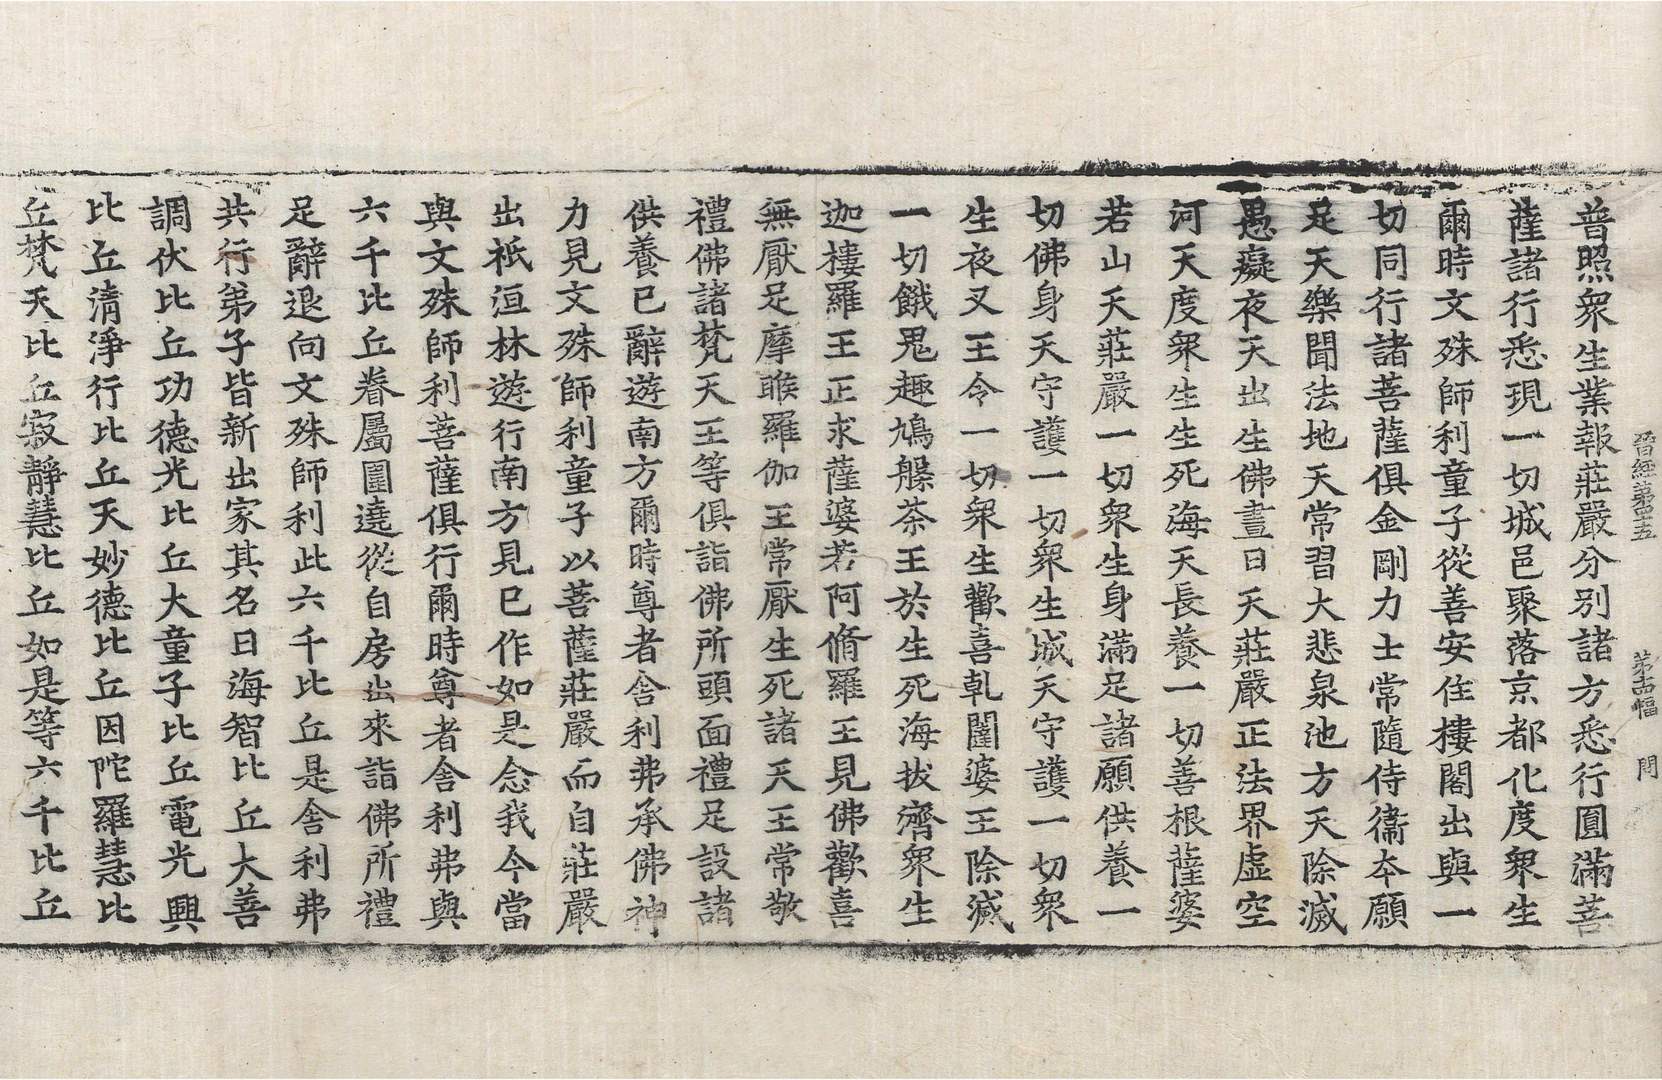 晉經第四五　第十四幅　門
普照衆生業報莊嚴分別諸方悉行圓滿菩
薩諸行悉現一切城邑聚落京都化度衆生
爾時文殊師利童子從善安住樓閣出與一
切同行諸菩薩俱金剛力士常隨侍衞本願
足天樂聞法地天常習大悲泉池方天除滅
愚癡夜天出生佛晝日天莊嚴正法界虛空
河天度衆生生死海天長養一切善根薩婆
若山天莊嚴一切衆生身滿足諸願供養一
切佛身天守護一切衆生城天守護一切衆
生夜叉王令一切衆生歡喜乹闥婆王除滅
一切餓鬼趣鳩槃荼王於生死海拔濟衆生
迦樓羅王正求薩婆若阿脩羅王見佛歡喜
無厭足摩睺羅伽王常厭生死諸天王常敬
禮佛諸梵天王等俱詣佛所頭面禮足設諸
供養已辭遊南方爾時尊者舍利弗承佛神
力見文殊師利童子以菩薩莊嚴而自莊嚴
出祇洹林遊行南方見已作如是念我今當
與文殊師利菩薩俱行爾時尊者舍利弗與
六千比丘眷屬圍遶從自房出來詣佛所禮
足辭退向文殊師利此六千比丘是舍利弗
共行弟子皆新出家其名曰海智比丘大善
調伏比丘功德光比丘大童子比丘電光興
比丘清淨行比丘天妙德比丘因陀羅慧比
丘梵天比丘寂靜慧比丘如是等六千比丘